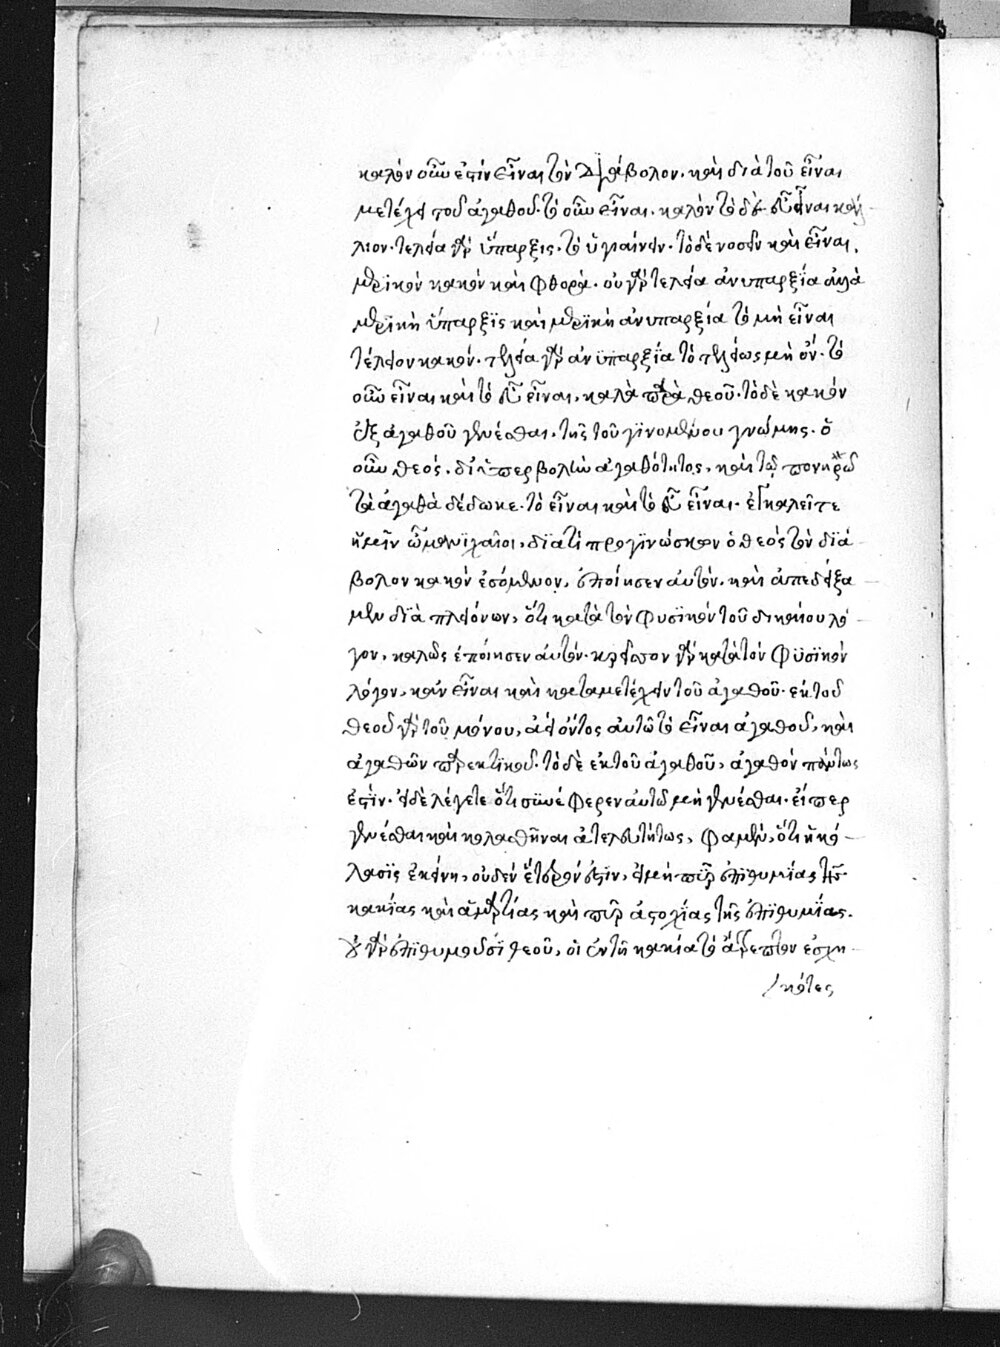 καλὸν οὖν ἐστὶν εἶναι τὸν διάβολον. καὶ διὰ τοῦ εἶναι
μετέχει τοῦ ἀγαθοῦ. τὸ οὖν εἶναι. καλὸν τὸ δὲ εὖ εἶναι κάλ
λιον. τελεία γὰρ ὕπαρξις. τὸ ὑγιαίνειν. τὸ δὲ νοσεῖν καὶ εἶναι.
μερικὸν κακὸν καὶ φθορά. οὐ γὰρ τελεία ἀνυπαρξία ἀλλὰ
μερικὴ ὕπαρξϊς καὶ μερϊκὴ ἀνυπαρξία τὸ μὴ εἶναι
τέλειον κακόν. τελεία γὰρ ἀνϋπαρξΐα τὸ τελείως μὴ ὄν. τὸ
οὖν εἶναι καὶ τὸ εὖ εἶναι, καλὰ παρὰ θεοῦ. τὸ δὲ κακὸν
ἐξ ἀγαθοῦ γενέσθαι. τῆς τοῦ γϊνομένου γνώμης. ὁ
οὖν θεός. δι' ὑπερβολὴν ἀγαθότητος, καὶ τῷ πονηρῷ
τὰ ἀγαθὰ δέδωκε. τὸ εἶναι καὶ τὸ εὖ εἶναι. ἐγκαλεῖτε
ἡμῖν ὦ μανϊχαῖοι, δϊατί προγϊνώσκων ὁ θεὸς τὸν δϊά
βολον κακὸν ἐσόμενον, ἐποίησεν αὐτόν. καὶ ἀπεδείξα
μεν δϊὰ πλειόνων, ὅτι κατὰ τὸν φυσϊκὸν τοῦ δικαίου λό
γον, καλῶς ἐποίησεν αὐτόν. κρεῖττον γὰρ κατὰ τὸν φϋσϊκὸν
λόγον, κἂν εἶναι καὶ κατὰ μετέχειν τοῦ ἀγαθοῦ. ἐκ τοῦ
θεοῦ γὰρ τοῦ μόνου, ἀεὶ ὄντος αὐτῶ τὸ εἶναι ἀγαθοῦ, καὶ
ἀγαθῶν παρεκτϊκοῦ. τὸ δὲ ἐκ τοῦ ἀγαθοῦ, ἀγαθὸν πάντως
ἐστίν. εἰ δὲ λέγετε ὅτι συνέφερεν αὐτῶ μὴ γενέσθαι. εἴπερ
γενέσθαι καὶ κολασθῆναι ἀτελευτήτως, φαμὲν, ὅτι ἡ κό
λασϊς ἐκείνη, οὐδὲν ἕτερόν ἐστϊν, εἰ μὴ πῦρ ἐπϊθυμίας τῆς
κακΐας καὶ ἁμαρτίας καὶ πῦρ ἀστοχΐας τῆς ἐπϊθυμΐας.
οὐ γὰρ ἐπϊθυμοῦσϊ θεοῦ, οἱ ἐν τῆ κακία τὸ ἄτρεπτον ἐσχη
κότες